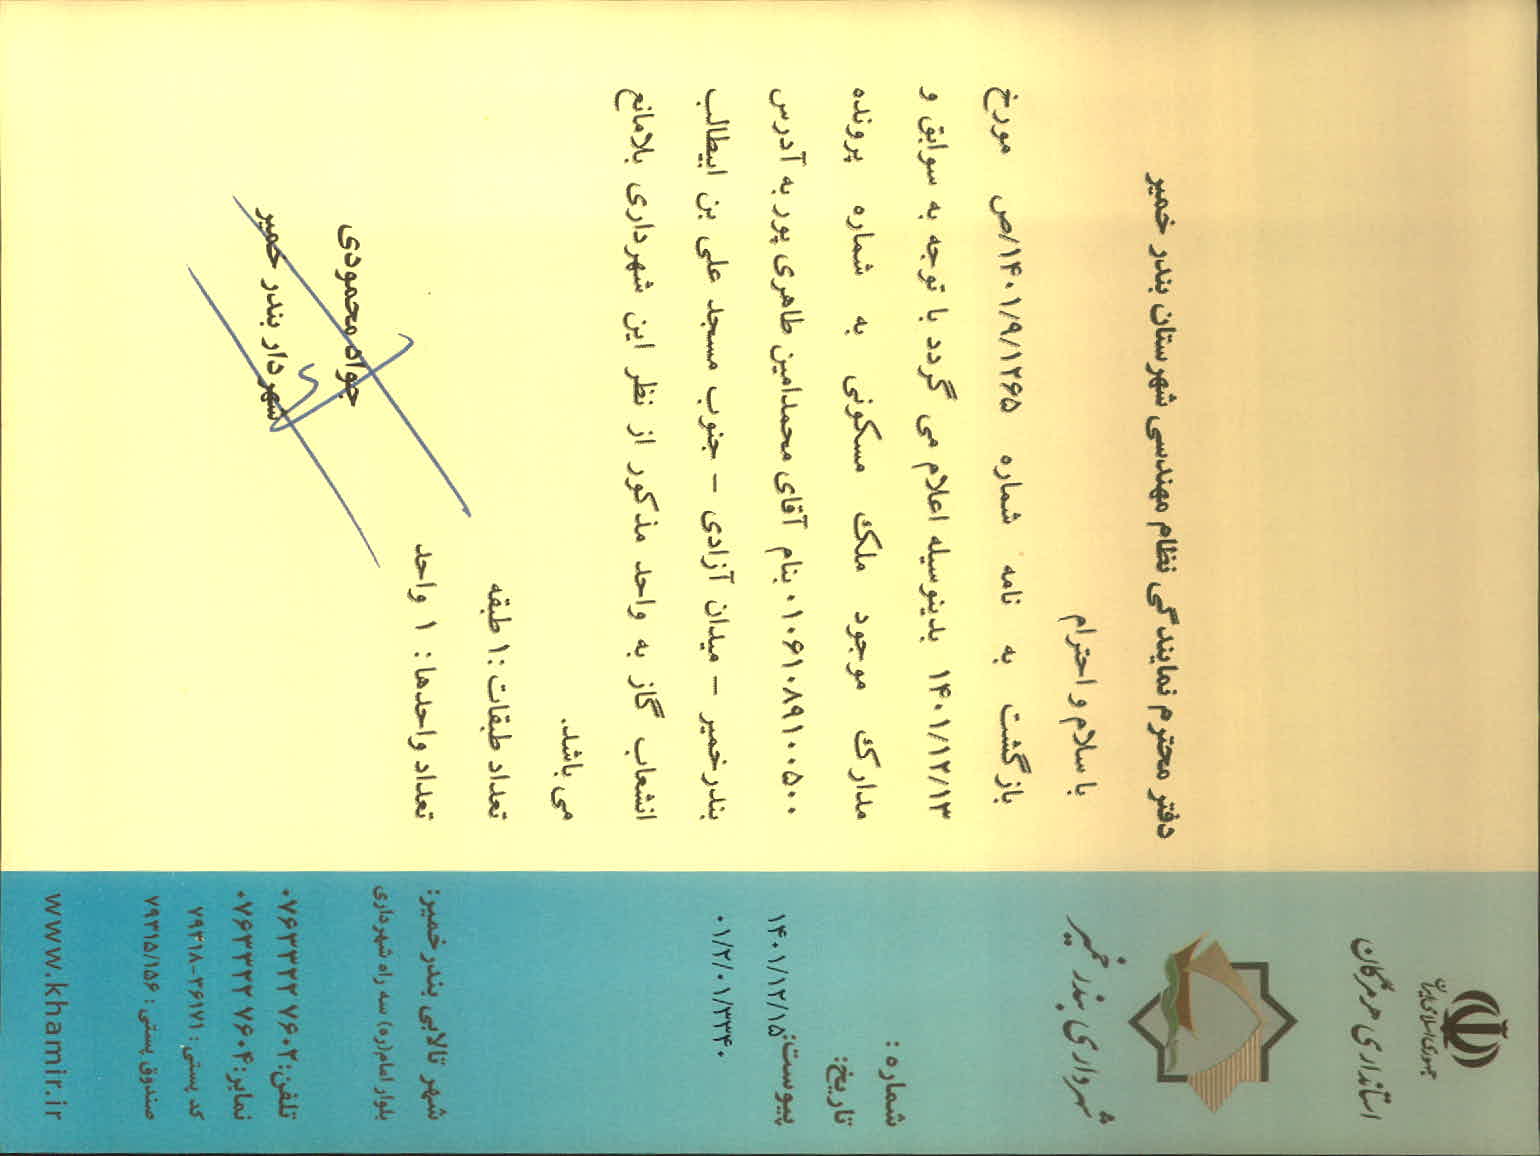 جمهوری اسلامی ایران
استانداری هرمزگان
شهرداری بندر خمیر
شماره :
تاریخ:
پیوست:
۱۴۰۱/۱۲/۱۵
۰۱/۲/۰۱/۳۳۴۰
دفتر محترم نمایندگی نظام مهندسی شهرستان بندر خمیر
با سلام و احترام
بازگشت به نامه شماره ۱۴۰۱/۹/۱۲۶۵/ص مورخ
۱۴۰۱/۱۲/۱۳ بدینوسیله اعلام می گردد با توجه به سوابق و
مدارک موجود ملک مسکونی به شماره پرونده
۰۱۰۶۱۰۸۹۱۰۰۵۰۰ بنام آقای محمدامین طاهری پور به آدرس
بندرخمیر – میدان آزادی – جنوب مسجد علی بن ابیطالب
انشعاب گاز به واحد مذکور از نظر این شهرداری بلامانع
می باشد.
تعداد طبقات :۱ طبقه
تعداد واحدها : ۱ واحد
جواد محمودی
شهردار بندر خمیر
شهر تالابی بندر خمیر:
بلوار امام(ره) سه راه شهرداری
تلفن:۰۷۶۳۳۲۲۷۶۰۲
نمابر:۰۷۶۳۳۲۲۷۶۰۴
کد پستی : ۷۹۳۱۸-۳۶۱۷۱
صندوق پستی : ۷۹۳۱۵/۱۵۶
www.khamir.ir